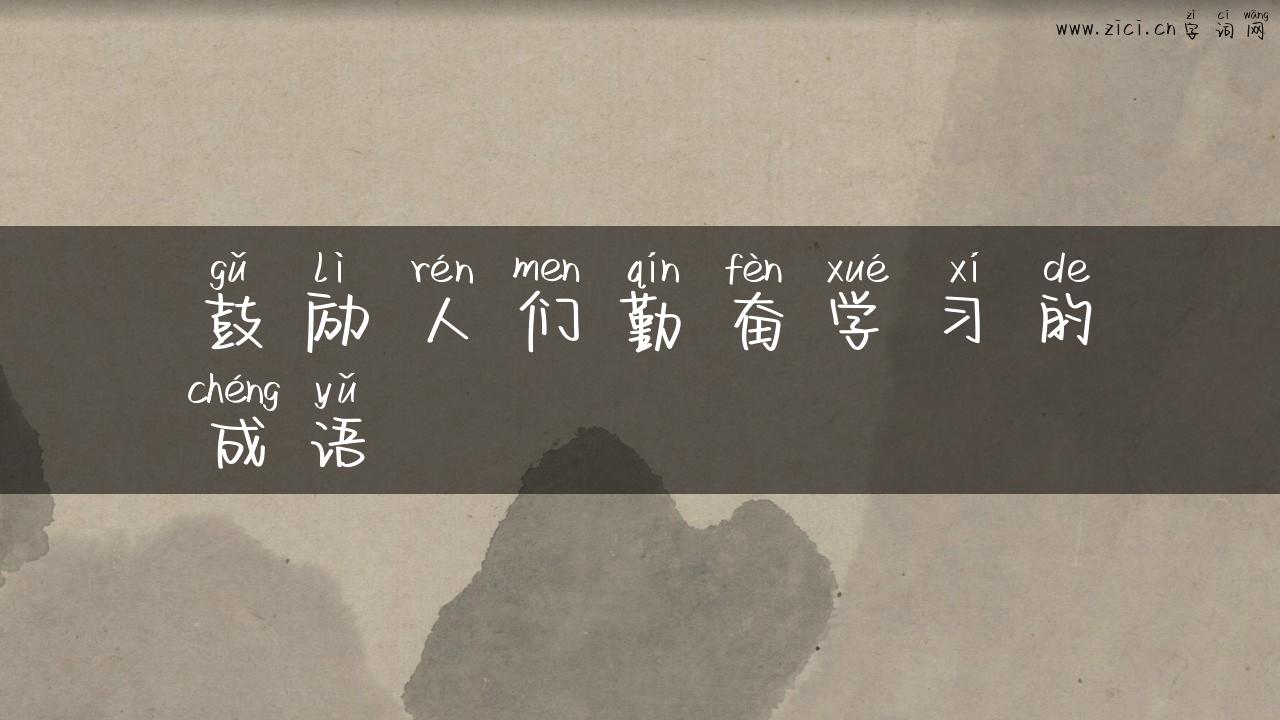 zì cí wǎng
www.zici.cn 字词网
gǔ lì rén men qín fèn xué xí de
鼓励人们勤奋学习的
chéng yǔ
成语